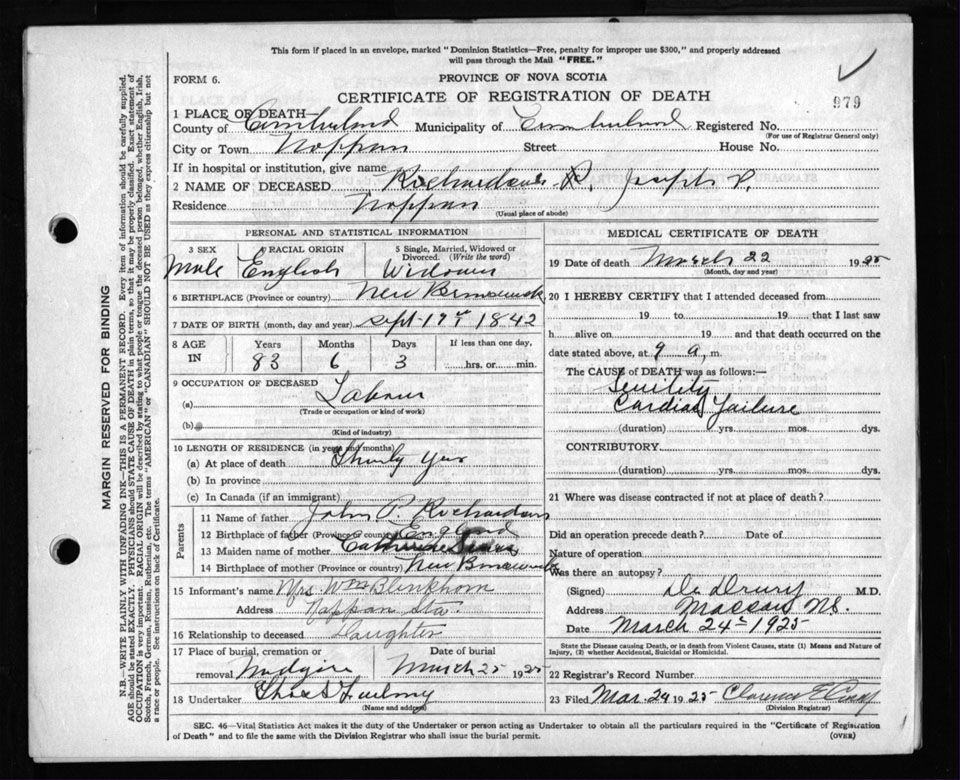 This form if placed in an envelope, marked "Dominion Statistics—Free, penalty for improper use $300," and properly addressed
will pass through the Mail "FREE."
FORM 6.
PROVINCE OF NOVA SCOTIA
CERTIFICATE OF REGISTRATION OF DEATH
979
1 PLACE OF DEATH
County of Cumberland Municipality of Cumberland Registered No.
(For use of Registrar General only)
City or Town Nappan Street House No.
If in hospital or institution, give name
2 NAME OF DECEASED Richardson Joseph P.
Residence Nappan
(Usual place of abode)
PERSONAL AND STATISTICAL INFORMATION
3 SEX 4 RACIAL ORIGIN 5 Single, Married, Widowed or
Divorced. (Write the word)
Male English Widower
6 BIRTHPLACE (Province or country) New Brunswick
7 DATE OF BIRTH (month, day and year) Sept 19 1842
8 AGE IN Years Months Days If less than one day,
83 6 3 hrs. or min.
9 OCCUPATION OF DECEASED
(a) Labour
(Trade or occupation or kind of work)
(b)
(Kind of industry)
10 LENGTH OF RESIDENCE (in years and months)
(a) At place of death Thirty Yrs
(b) In province
(c) In Canada (if an immigrant)
Parents
11 Name of father John P. Richardson
12 Birthplace of father (Province or country) England
13 Maiden name of mother Catherine
14 Birthplace of mother (Province or country) New Brunswick
15 Informant's name Mrs. Wm Blenkhorn
Address Nappan Sta.
16 Relationship to deceased Daughter
17 Place of burial, cremation or Date of burial
removal March 25 1925
18 Undertaker
(Name and address)
MEDICAL CERTIFICATE OF DEATH
19 Date of death March 22 1925
(Month, day and year)
20 I HEREBY CERTIFY that I attended deceased from
19 to 19 that I last saw
h alive on 19 and that death occurred on the
date stated above, at 9 a. m.
The CAUSE of DEATH was as follows:—
Senility
Cardiac Failure
(duration) yrs. mos. dys.
CONTRIBUTORY
(duration) yrs. mos. dys.
21 Where was disease contracted if not at place of death?
Did an operation precede death? Date of
Nature of operation
Was there an autopsy?
(Signed) Dr Drury M.D.
Address Maccan NS.
Date March 24th 1925
State the Disease causing Death, or in death from Violent Causes, state (1) Means and Nature of
Injury, (2) whether Accidental, Suicidal or Homicidal.
22 Registrar's Record Number
23 Filed Mar. 24 1925 Clarence E
(Division Registrar)
SEC. 46—Vital Statistics Act makes it the duty of the Undertaker or person acting as Undertaker to obtain all the particulars required in the "Certificate of Registration
of Death" and to file the same with the Division Registrar who shall issue the burial permit. (OVER)
MARGIN RESERVED FOR BINDING
N.B.—WRITE PLAINLY WITH UNFADING INK—THIS IS A PERMANENT RECORD. Every item of information should be carefully supplied.
AGE should be stated EXACTLY. PHYSICIANS should STATE CAUSE OF DEATH in plain terms, so that it may be properly classified. Exact statement of
OCCUPATION is very important. RACIAL ORIGIN will be described by stating to what people or tongue the deceased person belonged, whether English, Irish,
Scotch, French, German, Russian, Ruthenian, etc. The terms "AMERICAN" or "CANADIAN" SHOULD NOT BE USED as they express citizenship but not
a race or people. See instructions on back of Certificate.